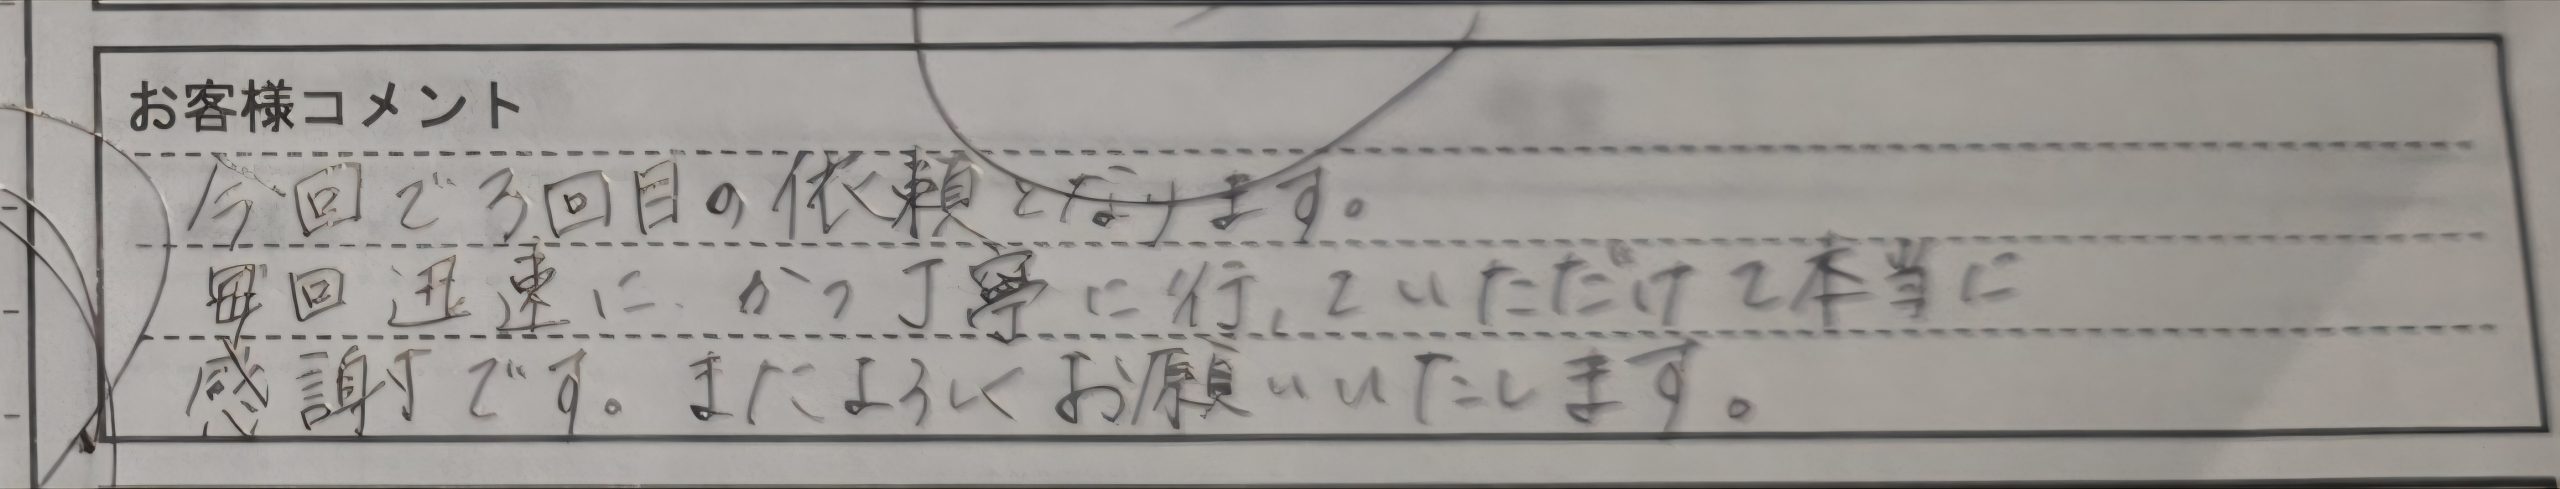 お客様コメント
今回で3回目の依頼となります。
毎回迅速に、かつ丁寧に行っていただけて本当に
感謝です。またよろしくお願いいたします。